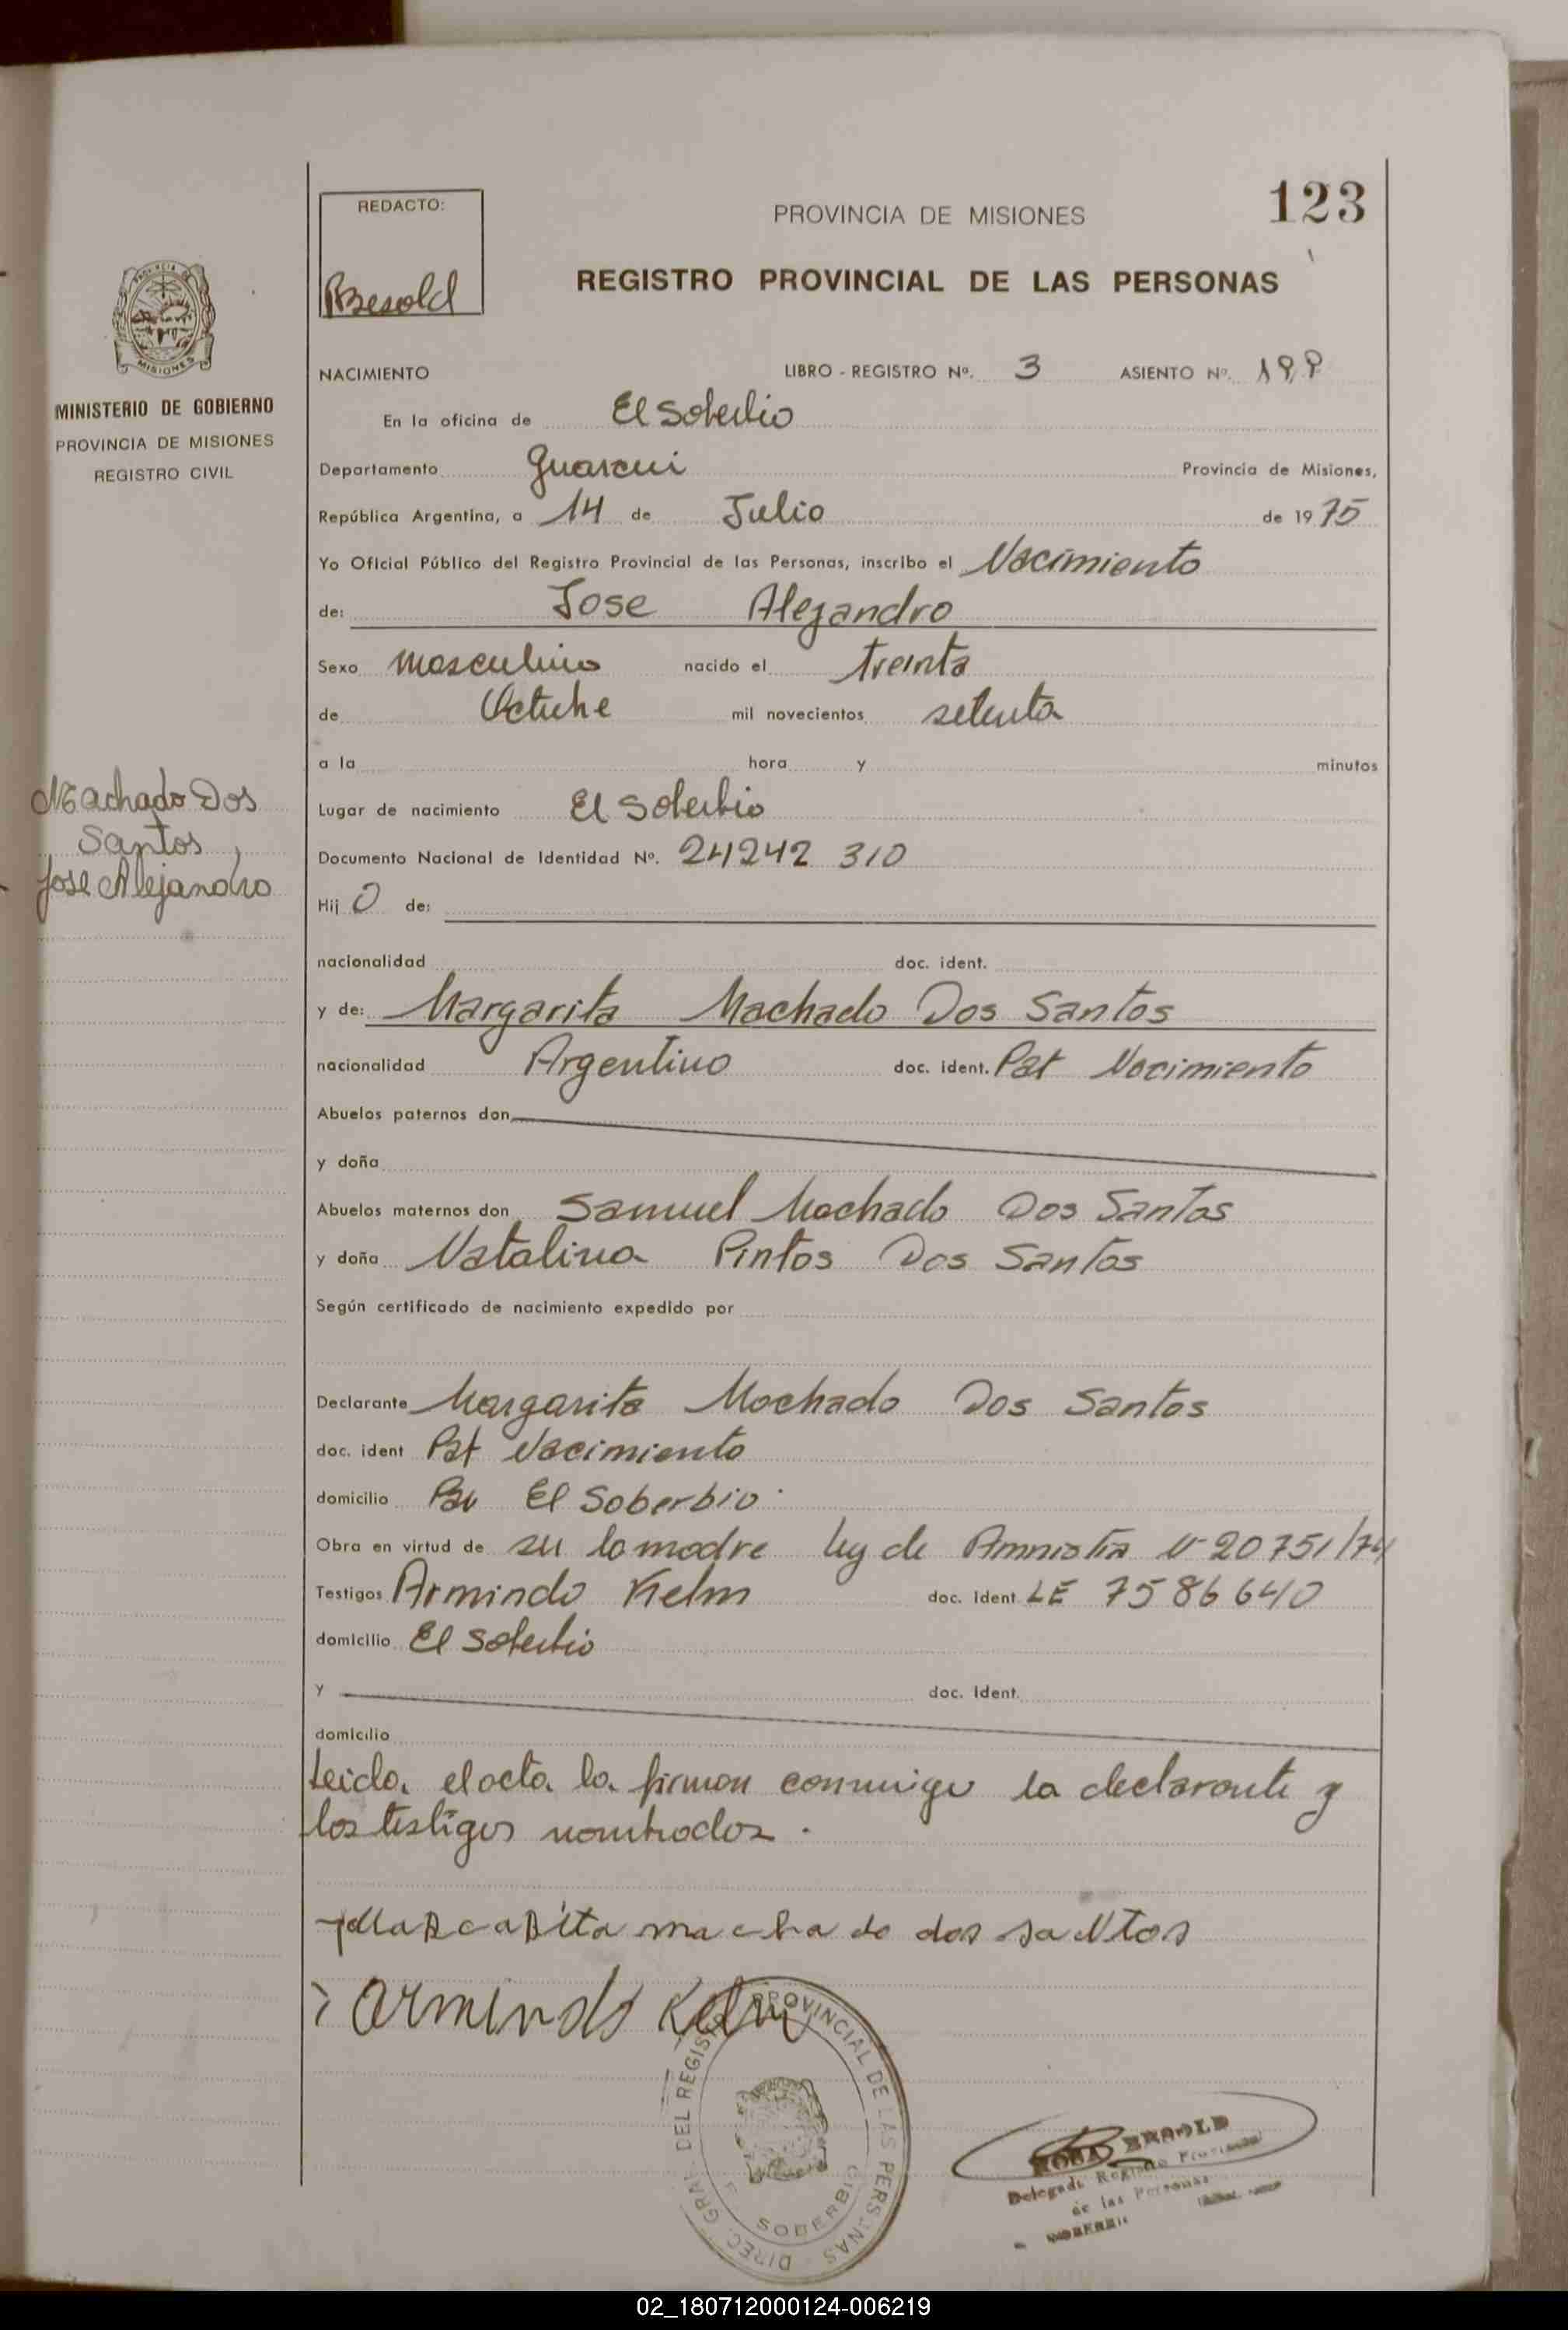 123
REDACTO:
Besold
PROVINCIA DE MISIONES
REGISTRO PROVINCIAL DE LAS PERSONAS
MISIONES
MINISTERIO DE GOBIERNO
PROVINCIA DE MISIONES
REGISTRO CIVIL
NACIMIENTO LIBRO - REGISTRO Nº. 3 ASIENTO Nº.
En la oficina de El Soberbio
Departamento Guarani Provincia de Misiones,
República Argentina, a 14 de Julio de 1975
Yo Oficial Público del Registro Provincial de las Personas, inscribo el Nacimiento
de: Jose Alejandro
Sexo masculino nacido el treinta
de Octubre mil novecientos setenta
a la hora y minutos
Machado Dos
Santos,
Jose Alejandro
Lugar de nacimiento El Soberbio
Documento Nacional de Identidad Nº. 24242 310
Hij O de:
nacionalidad doc. ident.
y de: Margarita Machado Dos Santos
nacionalidad Argentino doc. ident. Pat Nacimiento
Abuelos paternos don
y doña
Abuelos maternos don Samuel Machado Dos Santos
y doña Natalina Pintos Dos Santos
Según certificado de nacimiento expedido por
Declarante Margarita Machado Dos Santos
doc. ident Pat Nacimiento
domicilio El Soberbio
Obra en virtud de su la madre Ley de Amnistia Nº 20751/74
Testigos Armindo Kelm doc. Ident. LE 7586640
domicilio El Soberbio
y doc. Ident.
domicilio
Leida el acta la firman conmigo la declarante y
los testigos nombrados.
Margarita machado dos santos
Armindo Kelm
DIREC. GRAL. DEL REGISTRO PROVINCIAL DE LAS PERSONAS
SOBERBIO
ROSA BESOLD
Delegada Registro Provincial
de las Personas
SOBERBIO
02_180712000124-006219